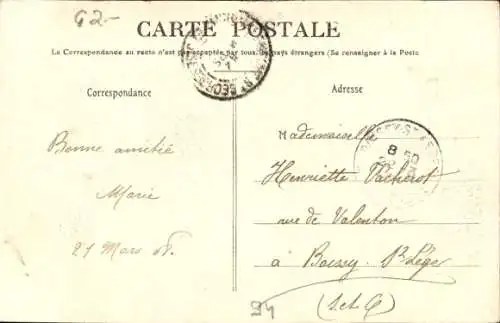 G2-
CARTE POSTALE
Le Correspondance au recto n'est pas acceptée par tous les pays étrangers (Se renseigner à la Poste
Correspondance
Adresse
Bonne amitié
Marie
21 Mars 08.
Mademoiselle
Henriette Vacherot
rue de Valenton
à Boissy St Léger
(S et O)
8 50
94